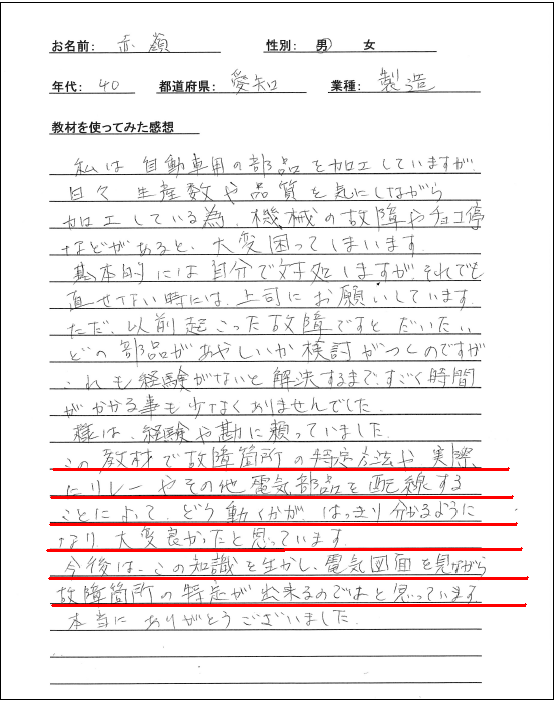 お名前: 赤嶺 性別: 男 女
年代: 40 都道府県: 愛知 業種: 製造
教材を使ってみた感想
私は自動車用の部品を加工していますが
日々生産数や品質を気にしながら
加工している為、機械の故障やチョコ停
などがあると、大変困ってしまいます。
基本的には自分で対処しますが、それでも
直せない時には、上司にお願いしています。
ただ、以前起こった故障ですとだいたい
どの部品があやしいか検討がつくのですが
これも経験がないと解決するまで、すごく時間
がかかる事も少なくありませんでした。
様は、経験や勘に頼っていました。
この教材で故障箇所の特定方法や実際
にリレーやその他電気部品を配線する
ことによって、どう動くかが、はっきり分かるように
なり大変良かったと思っています。
今後は、この知識を生かし、電気図面を見ながら
故障箇所の特定が出来るのではと思っています。
本当にありがとうございました。